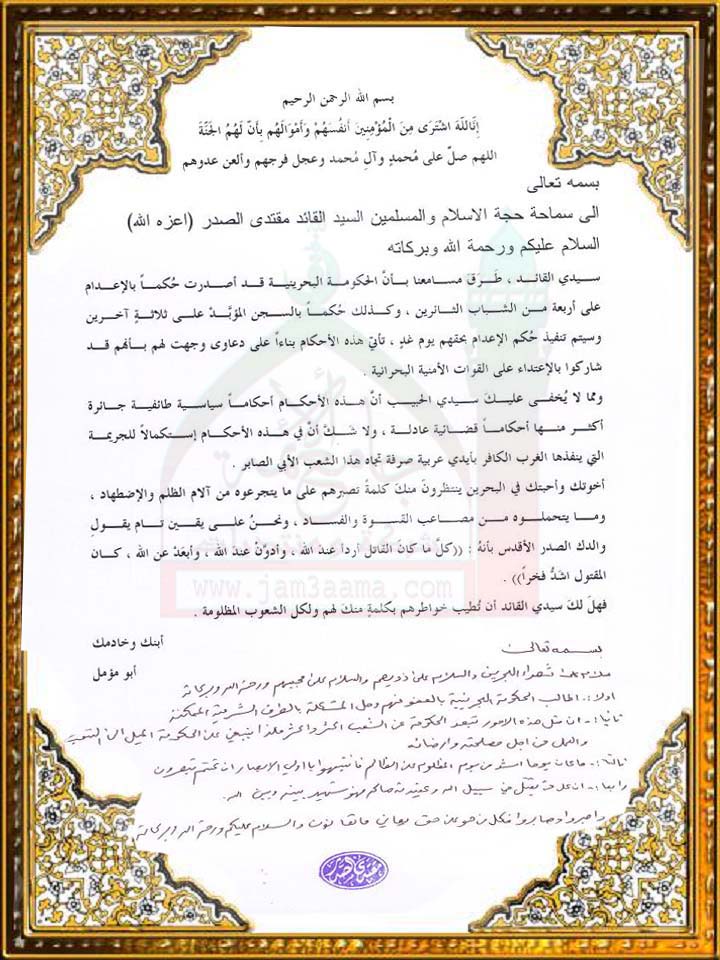 بسم الله الرحمن الرحيم
إِنَّاللّهَ اشْتَرَى مِنَ الْمُؤْمِنِينَ أَنفُسَهُمْ وَأَمْوَالَهُم بِأَنَّ لَهُمُ الجَنَّةَ
اللهم صلِّ على مُحمدٍ وآلِ مُحمد وعجل فرجهم وألعن عدوهم
بسمه تعالى
الى سماحة حجة الاسلام والمسلمين السيد القائد مقتدى الصدر (اعزه الله)
السلام عليكم ورحمة الله وبركاته
سيدي القائد ، طَرَقَ مسامعنا بأنَّ الحكومة البحرينية قد أصدرت حُكماً بالإعدام
على أربعة من الشباب الثائرين ، وكذلك حُكماً بالسجن المؤبَّد على ثلاثةٍ آخرين
وسيتم تنفيذ حُكم الإعدام بحقهم يوم غدٍ ، تأتيَ هذه الأحكام بناءاً على دعاوى وجهت لهم بأنهم قد
شاركوا بالإعتداء على القوات الأمنية البحرانية .
ومما لا يُخفى عليكَ سيدي الحبيب أنَّ هذه الأحكام أحكاماً سياسية طائفية جائرة
أكثر منها أحكاماً قضائية عادلة ، ولا شَكَّ أنَّ في هذه الأحكام إستكمالاً للجريمة
التي ينفذها الغرب الكافر بأيدي عربية صرفة تجاه هذا الشعب الأبي الصابر .
أخوتك وأحبتك في البحرين ينتظرونَ منكَ كلمةً تصبرهم على ما يتجرعوه من آلام الظلم والإضطهاد ،
وما يتحملوه من مصاعب القسوة والفساد ، ونحنُ على يقين تام يقولِ
والدك الصدر الأقدس بأنهُ : ((كلَّ ما كانَ القاتل أردأ عندَ الله ، وأدوَّن عندَ الله ، وأبعَدْ عن الله ، كان
المقتول اشَدُّ فخراً)) .
فهلَ لكَ سيدي القائد أن تُطيب خواطرهم بكلمةٍ منكَ لهم ولكل الشعوب المظلومة .
أبنك وخادمك
أبو مؤمل
بسمه تعالى
سلام على شهداء البحرين والسلام على ذويهم والسلام على محبيهم ورحمة الله وبركاته
اولا:- اطالب الحكومة البحرينية بالعفو عنهم وحل المشكلة بالطرق الشرعية الممكنة
ثانيا:- ان مثل هذه الامور تبعد الحكومة عن الشعب اكثر واكثر فلذا ينبغي على الحكومة الميل الى الشعب
والعمل من اجل مصلحته وارضائه
ثالثا:- ما كان يوما اشد من يوم المظلوم على الظالم فانتبهوا يا اولي الابصار ان كنتم تبصرون
رابعا:- ان كل من يقتل في سبيل الله وعقيدته صالحة فهو شهيد بينه وبين الله.
واصبروا وصابروا فكل من هو على حق يعاني والسلام عليكم ورحمة الله وبركاته
www.jam3aama.com